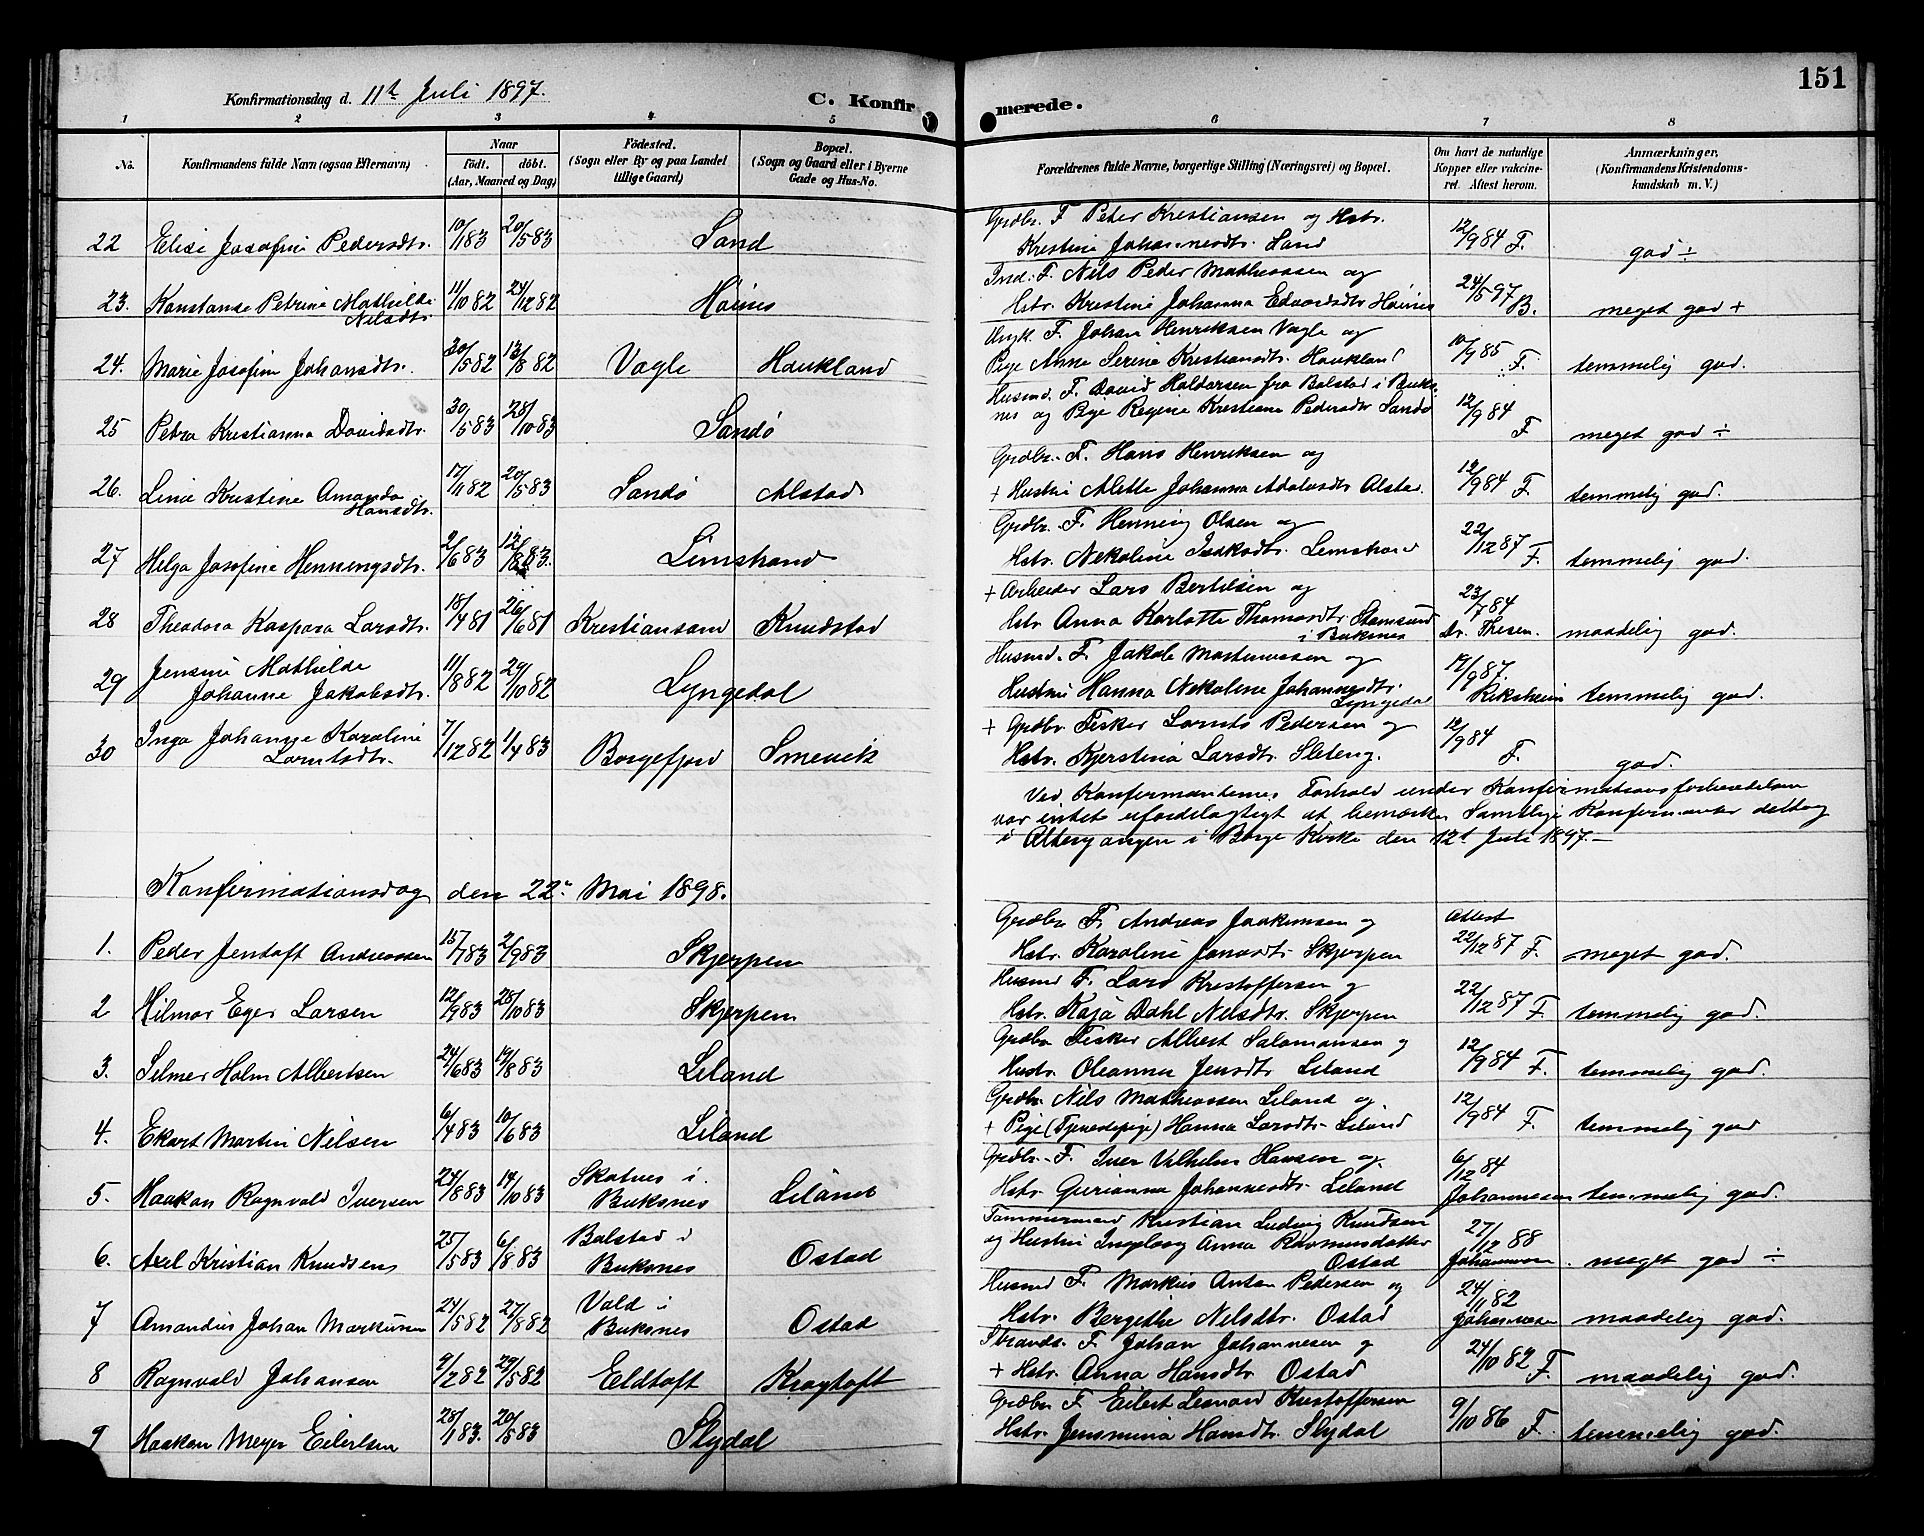 151
Konfirmationsdag d. 11te Juli 1897.
C. Konfirmerede.
1 2 3 4 5 6 7 8
No.
Konfirmandens fulde Navn (ogsaa Efternavn)
Naar
født. døbt.
(Aar, Maaned og Dag)
Fødested.
(Sogn eller By og paa Landet
tillige Gaard)
Bopæl.
(Sogn og Gaard eller i Byerne
Gade og Hus-No.
Forældrenes fulde Navne, borgerlige Stilling (Næringsvei) og Bopæl.
Om havt de naturlige
Kopper eller vakcine-
ret. Attest herom.
Anmærkninger,
(Konfirmandens Kristendoms-
kundskab m. V.)
22 Elise Josefine Pedersdtr. 10/1 83 20/5 83 Sand
Grdbr. F. Peter Kristiansen og Hstr.
Kristine Johannesdtr. Sand 12/9 84 F. god ÷
23. Konstanse Petrine Mathilde
Nilsdtr 11/10 82 24/12 82 Høines
Ind. F. Nils Peder Mathiassen og
Hstr. Kristine Johanna Edvardsdtr Høines 24/5 97 B. meget god +
24. Marie Josefine Johansdtr. 30/5 82 13/8 82 Vagle Haukland
Ungk. F. Johan Henriksen Vagle og
Pige Anna Serine Kristiansdtr. Haukland 10/9 85 F. temmelig god.
25 Petra Kristianna Davidsdtr. 30/5 83 28/10 83 Sandø
Husmd. F. David Haldorsen fra Balstad i Buks-
nes og Pige Regine Kristiane Pedersdtr Sandø 12/9 84 F meget god ÷
26. Line Kristine Amanda
Hansdtr. 17/11 82 20/5 83 Sandø Alstad
Grdbr. F. Hans Henriksen og
+ Hustru Alette Johanna Adolvsdtr Alstad. 12/9 84 F. temmelig god.
27 Helga Josefine Henningsdtr. 2/6 83 12/8 83. Limstrand
Grdbr. F. Henning Olsen og
Hstr. Nekoline Isaksdtr. Limstrand 22/12 87 F. temmelig god.
28 Theodora Kaspara Larsdtr. 18/4 81 26/6 81 Kristiansand Knudstad
+ Arbeider Lars Bertilsen og
Hstr. Anna Karlotte Thomasdtr. Stamsund
i Buksnes 23/7 84
Dr. Thesen. maadelig god.
29 Jensine Mathilde
Johanne Jakobsdtr. 11/8 82 29/10 82 Lyngedal
Husmd. F. Jakob Martinussen og
Hustru Hanna Nekoline Johannesdtr.
Lyngedal 17/9 87. Riksheim temmelig god.
30 Inga Johanne Karoline
Larntsdtr. 7/12 82 1/4 83 Borgefjord Smevik
+ Grdbr. Fisker Larnts Pedersen og
Hstr. Kjerstina Larsdtr. Sleteng. 12/9 84 F. god.
Ved Konfirmanternes Forhold under Konfirmationsforberedelsen
var intet ufordelagtigt at bemærke. Samtlige Konfirmanter deltog
i Altergangen i Borge Kirke den 12te Juli 1897.–
Konfirmationsdag den 22de Mai 1898.
1. Peder Jentoft Andreassen 15/7 83 2/9 83 Skjerpen
Grdbr F. Andreas Joakimsen og
Hstr. Karoline Jonasdtr Skjerpen Attest
22/12 87 F. meget god.
2 Hilmar Eger Larsen 12/9 83 28/10 83 Skjerpen
Husmd F. Lars Kristoffersen og
Hstr. Kaja Dahl Nilsdtr. Skjerpen 22/12 87 F temmelig god.
3. Selmer Holm Albertsen 24/6 83 19/8 83 Leland
Grdbr Fisker Albert Salamonsen og
Hustr. Oleanna Jensdtr Leland 12/9 84 F. temmelig god.
4. Ekart Martin Nilsen 6/4 83 10/6 83 Leland
Grdbr. Nils Mathiassen Leland og
+ Pige (Tjenestepige) Hanna Larsdtr Leland 12/9 84 F. temmelig god
5. Haakon Ragnvald Iversen 24/8 83 14/10 83 Skotnes i
Buksnes Leland
Grdbr. F. Iver Vilhelm Hansen og
Hstr. Gurianna Johannesdtr. Leland 6/12 84
Johannessen temmelig god.
6. Axel Kristian Knudsen 25/5 83 6/8 83 Balstad i
Buksnes Ostad
Tømmermand Kristian Ludvig Knudsen
og Hustru Ingeborg Anna Rasmusdatter
Ostad 27/12 88
Johannessen. meget god ÷
7 Amandus Johan Markussen 24/5 82 27/8 82 Vold i
Buksnes Ostad
Husmd F. Markus Anton Pedersen og
Hstr. Bergithe Nilsdtr. Ostad 24/11 82
Johannessen maadelig god.
8 Ragnvald Johansen 9/2 82 29/5 82 Eldtoft Kragtoft
Strands. F. Johan Johannesen og
+ Hstr. Anna Hansdtr. Ostad 24/10 82 F. maadelig god.
9 Haakon Meyer Eilertsen 28/1 83. 20/5 83 Slydal
Grdbr F. Eilert Leonard Kristoffersen
Hstr. Jensmina Hansdtr. Slydal 9/10 86 F. temmelig god.